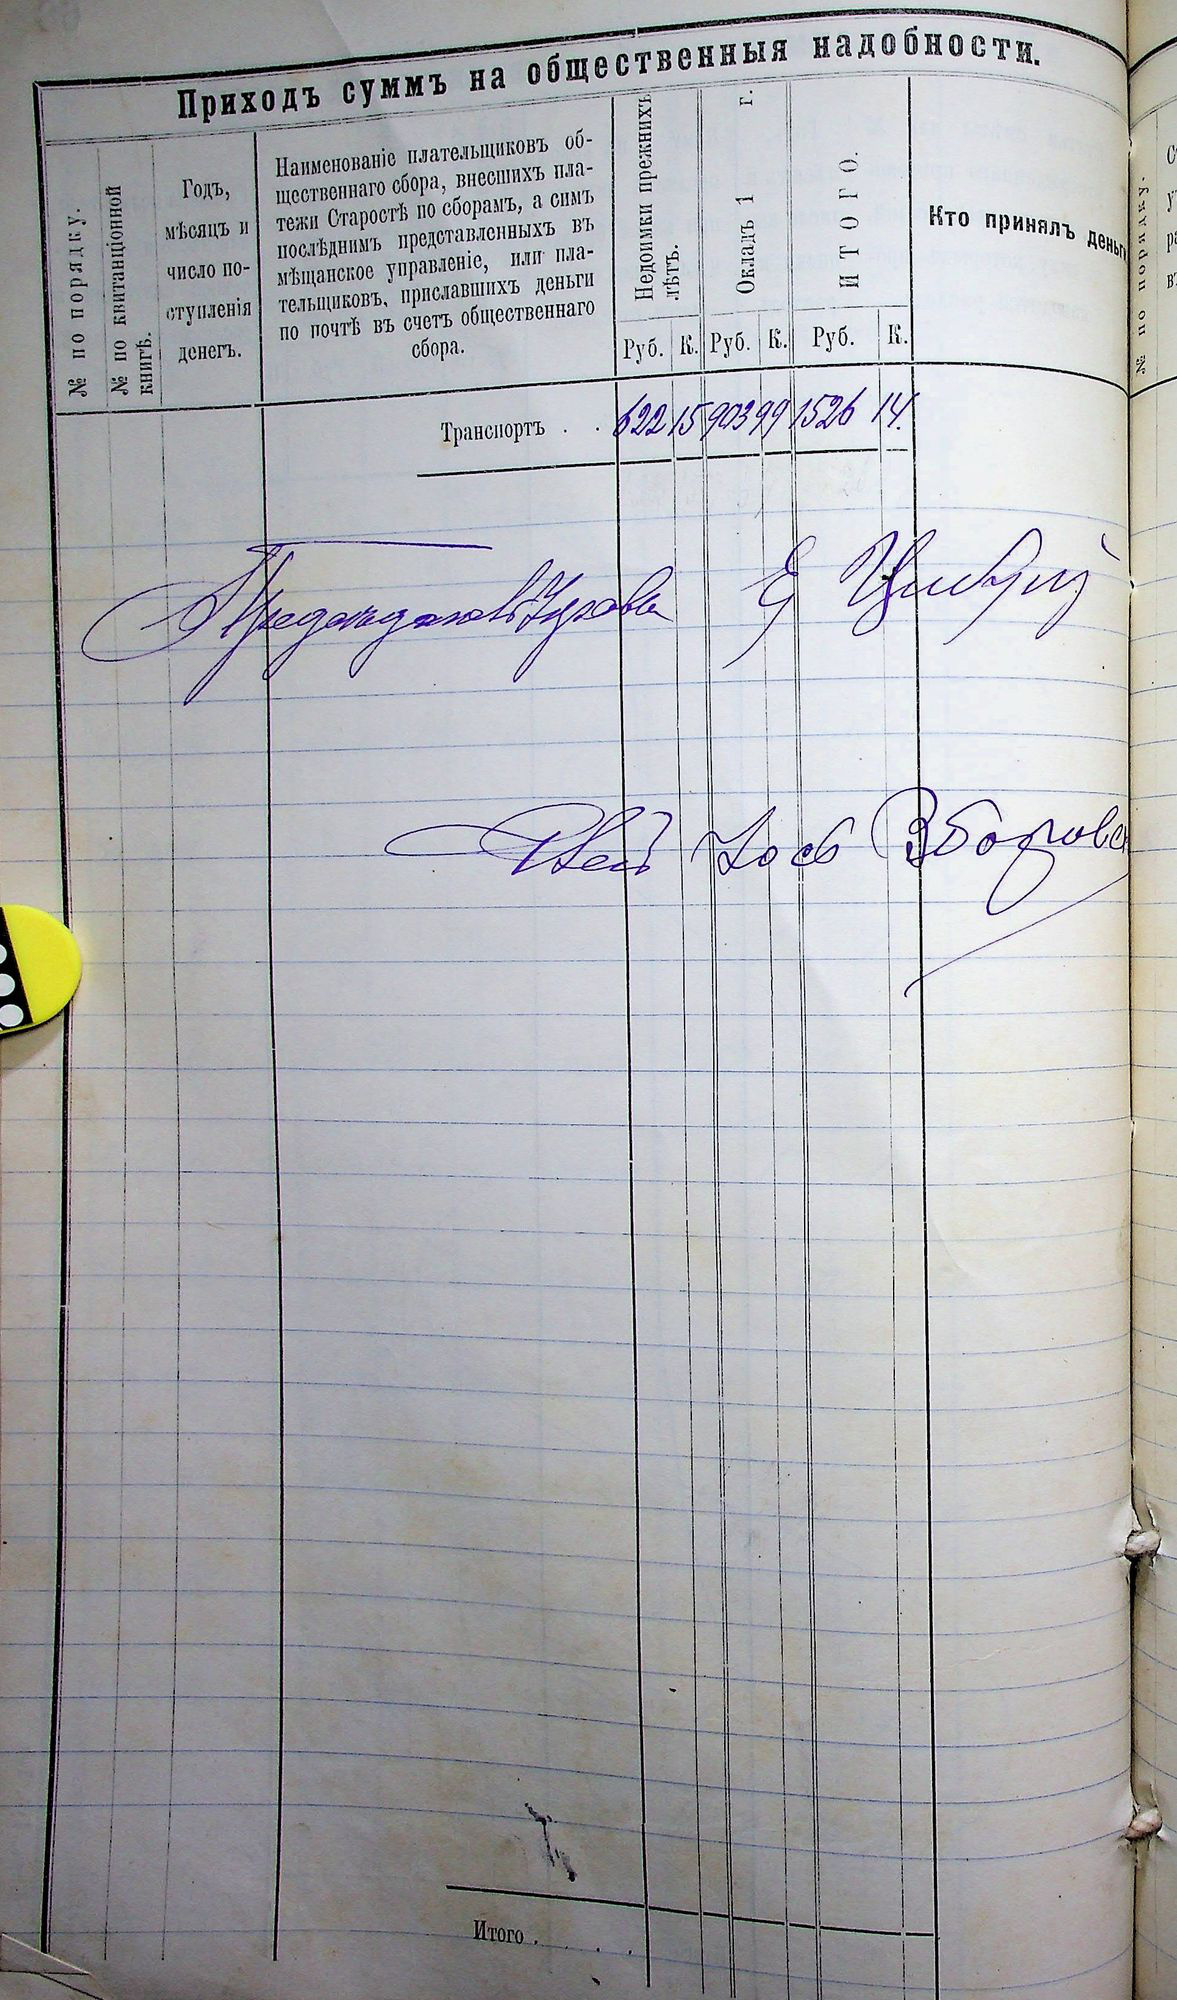 Приходъ суммъ на общественныя надобности.
№ по порядку.
№ по квитанціонной
книгѣ.
Годъ,
мѣсяцъ и
число по-
ступленія
денегъ.
Наименованіе плательщиковъ об-
щественнаго сбора, внесшихъ пла-
тежи Старостѣ по сборамъ, а симъ
послѣднимъ представленныхъ въ
мѣщанское управленіе, или пла-
тельщиковъ, приславшихъ деньги
по почтѣ въ счетъ общественнаго
сбора.
Недоимки прежнихъ
лѣтъ.
Окладъ 1 г.
ИТОГО.
Руб. К. Руб. К. Руб. К.
Кто принялъ деньги
№ по порядку.
Транспортъ . . 622 15 903 99 1526 14.
Е
Итого . . . .